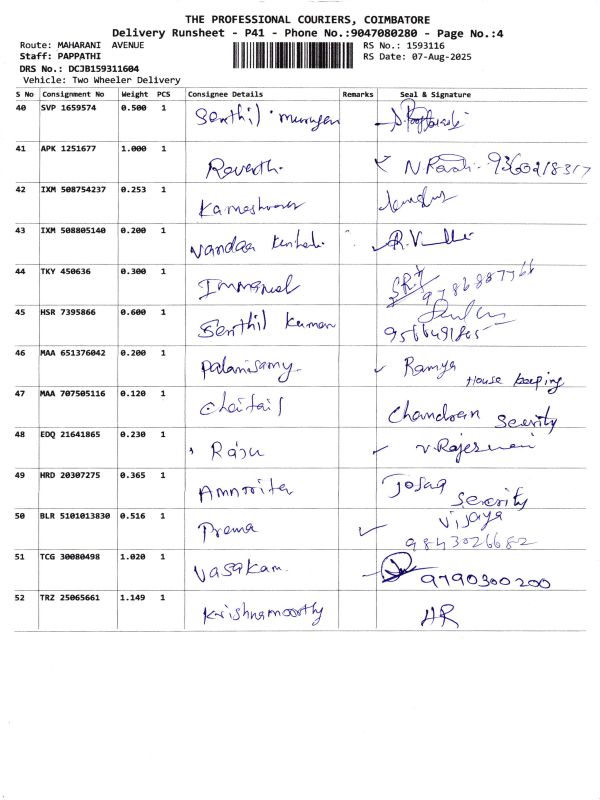 THE PROFESSIONAL COURIERS, COIMBATORE
Delivery Runsheet - P41 - Phone No.:9047080280 - Page No.:4
Route: MAHARANI AVENUE RS No.: 1593116
Staff: PAPPATHI RS Date: 07-Aug-2025
DRS No.: DCJB159311604
Vehicle: Two Wheeler Delivery
S No Consignment No Weight PCS Consignee Details Remarks Seal & Signature
40 SVP 1659574 0.500 1 Senthil murugan
41 APK 1251677 1.000 1
42 IXM 508754237 0.253 1 Kameshwaran
43 IXM 508805140 0.200 1
44 TKY 450636 0.300 1 Immanuel
45 HSR 7395866 0.600 1 Senthil Kumar
46 MAA 651376042 0.200 1 Palanisamy Ramya
House keeping
47 MAA 707505116 0.120 1 Chandran
Seserity
48 EDQ 21641865 0.230 1 Raju
49 HRD 20307275 0.365 1 Amnrita
Seserity
50 BLR 5101013830 0.516 1 Prema Vijaya
9843026682
51 TCG 30080498 1.020 1 Vasakam.
9790300200
52 TRZ 25065661 1.149 1 Krishnamoorthy HR